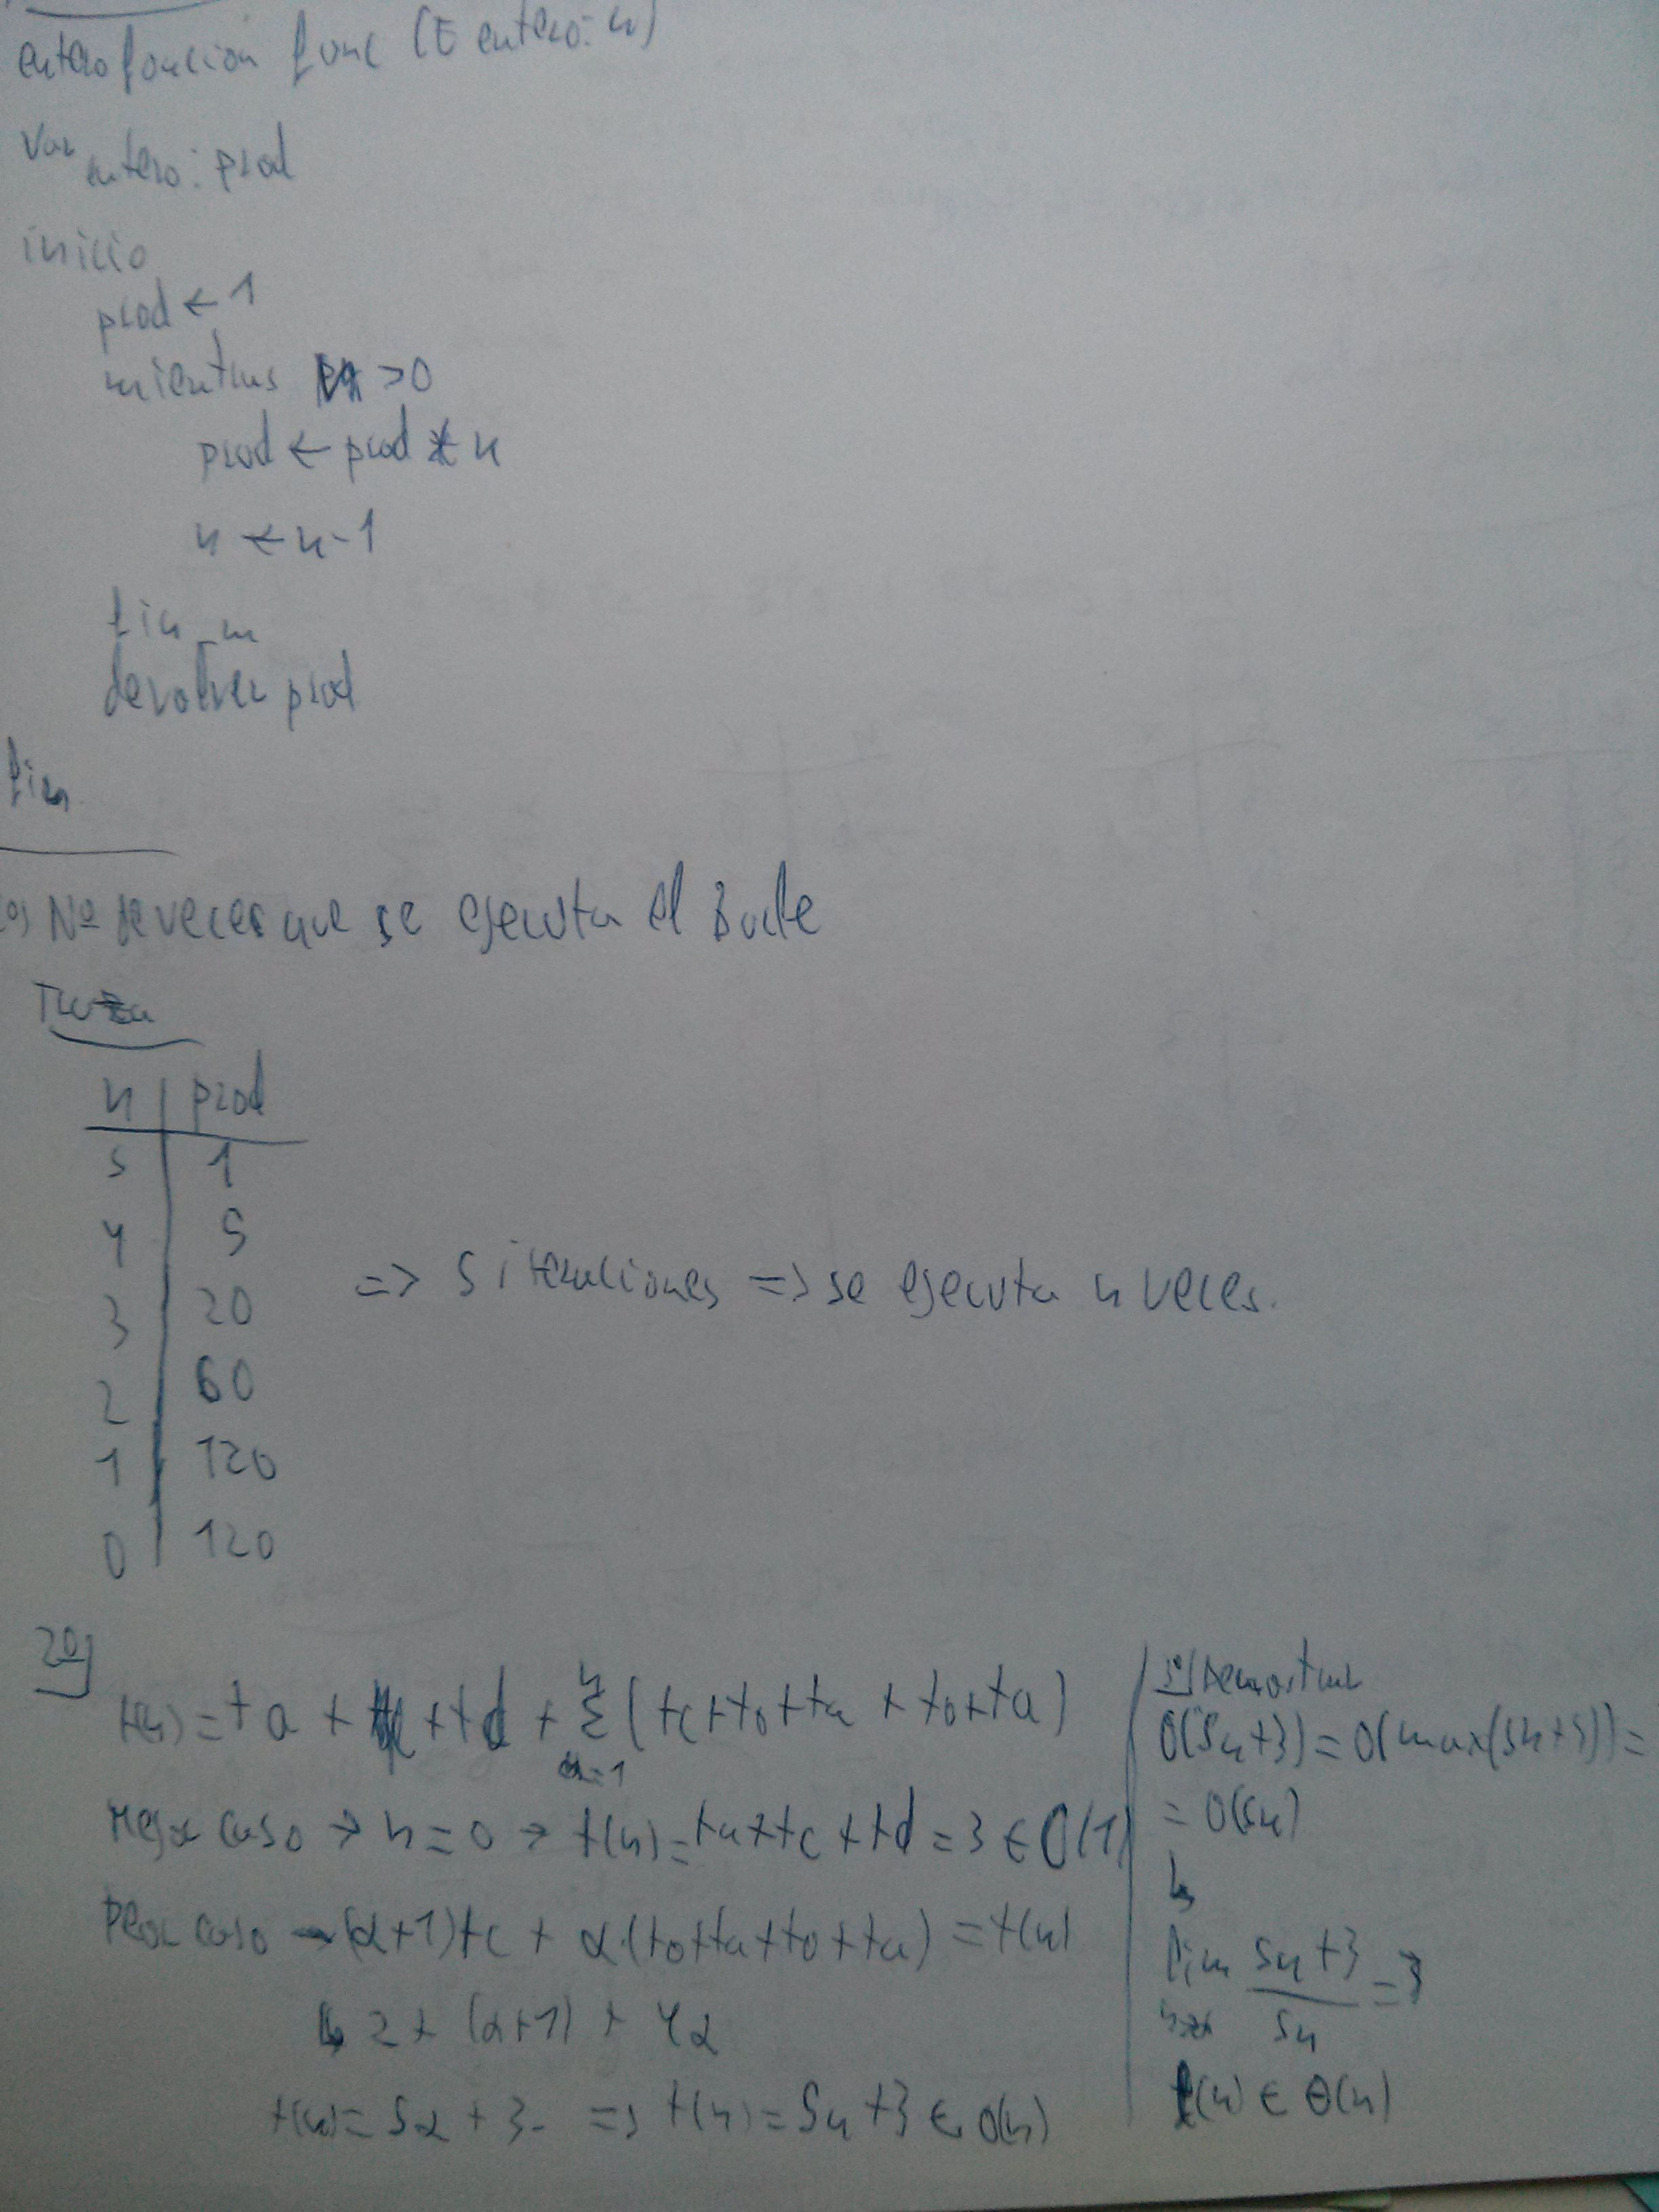 entero función func (E entero: n)
Var entero: prod
inicio
prod ← 1
mientras n > 0
prod ← prod * n
n ← n-1
fin_m
devolver prod
fin
Nº de veces que se ejecuta el Bucle
Traza
n | prod
5 | 1
4 | 5
3 | 20
2 | 60
1 | 120
0 | 120
=> 5 iteraciones => se ejecuta n veces.
2º)
t(n) = ta + tc + td + Σ n=1 n (tc + to + ta + to + ta)
Mejor caso → n = 0 → t(n) = ta + tc + td = 3 ∈ O(1)
Peor caso → (α+1)tc + α·(to + ta + to + ta) = t(n)
↳ 2 + (α+1) + 4α
t(n) = 5α + 3 => t(n) = 5n + 3 ∈ O(n)
Demostrar
O(5n+3) = O(max(5n+3)) =
= O(5n)
↳
lim n→∞ 5n+3 / 5n = 3
t(n) ∈ Θ(n)